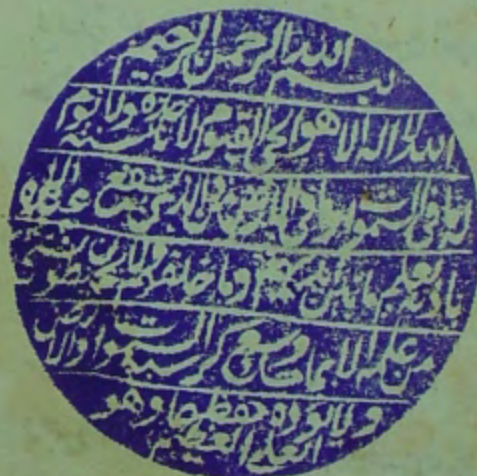 بسم الله الرحمن الرحيم
الله لا اله الا هو الحي القيوم لا تاخذه سنة ولا نوم
له ما فى السموات وما فى الارض من ذا الذى يشفع عنده الا
باذنه يعلم ما بين ايديهم وما خلفهم ولا يحيطون بشئ
من علمه الا بما شاء وسع كرسيه السموات والارض
ولا يؤده حفظهما وهو
العلى العظيم